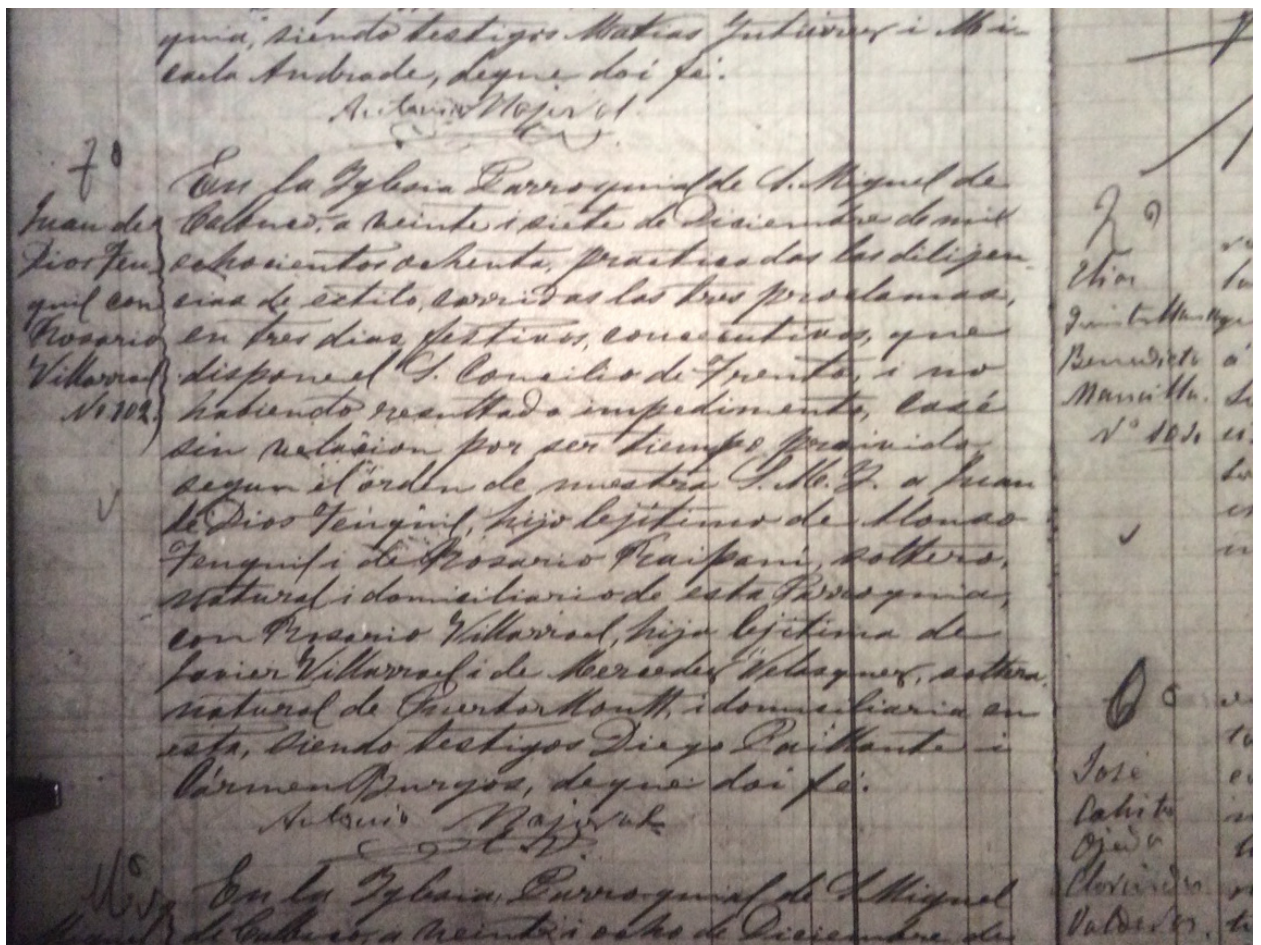 quia, siendo testigos Matias Gutierrez i Mi-
caela Andrade, de que doi fé.
Antonio Mayoral
7º
Juan de
Dios Ten-
quil con
Rosario
Villarroel
Nº 102
En la Yglesia Parroquial de S. Miguel de
Calbuco, a veinte i siete de Diciembre de mil
ochocientos ochenta, practicadas las dilijen-
cias de estilo, corridas las tres proclamas,
en tres dias festivos, concecutivos, que
dispone el S. Concilio de Trento, i no
habiendo resultado impedimento, casé
sin velacion por ser tiempo
segun el órden de nuestra S. M. Y. a Juan
de Dios Tenquil, hijo lejítimo de Alonso
Tenquil i de Rosario Raipani, soltero,
natural i domiciliario de esta Parroquia,
con Rosario Villarroel, hija lejítima de
Javier Villarroel i de Mercedes Velasquez, soltera,
natural de Puerto Montt, i domiciliaria en
esta, siendo testigos Diego Paillante i
Cármen Burgos, de que doi fé.
Antonio Mayoral
En la Yglesia Parroquial de S. Miguel
de Calbuco, a veinti i ocho de Diciembre de
Elias
Benedicto
Mansilla.
José
Ojeda